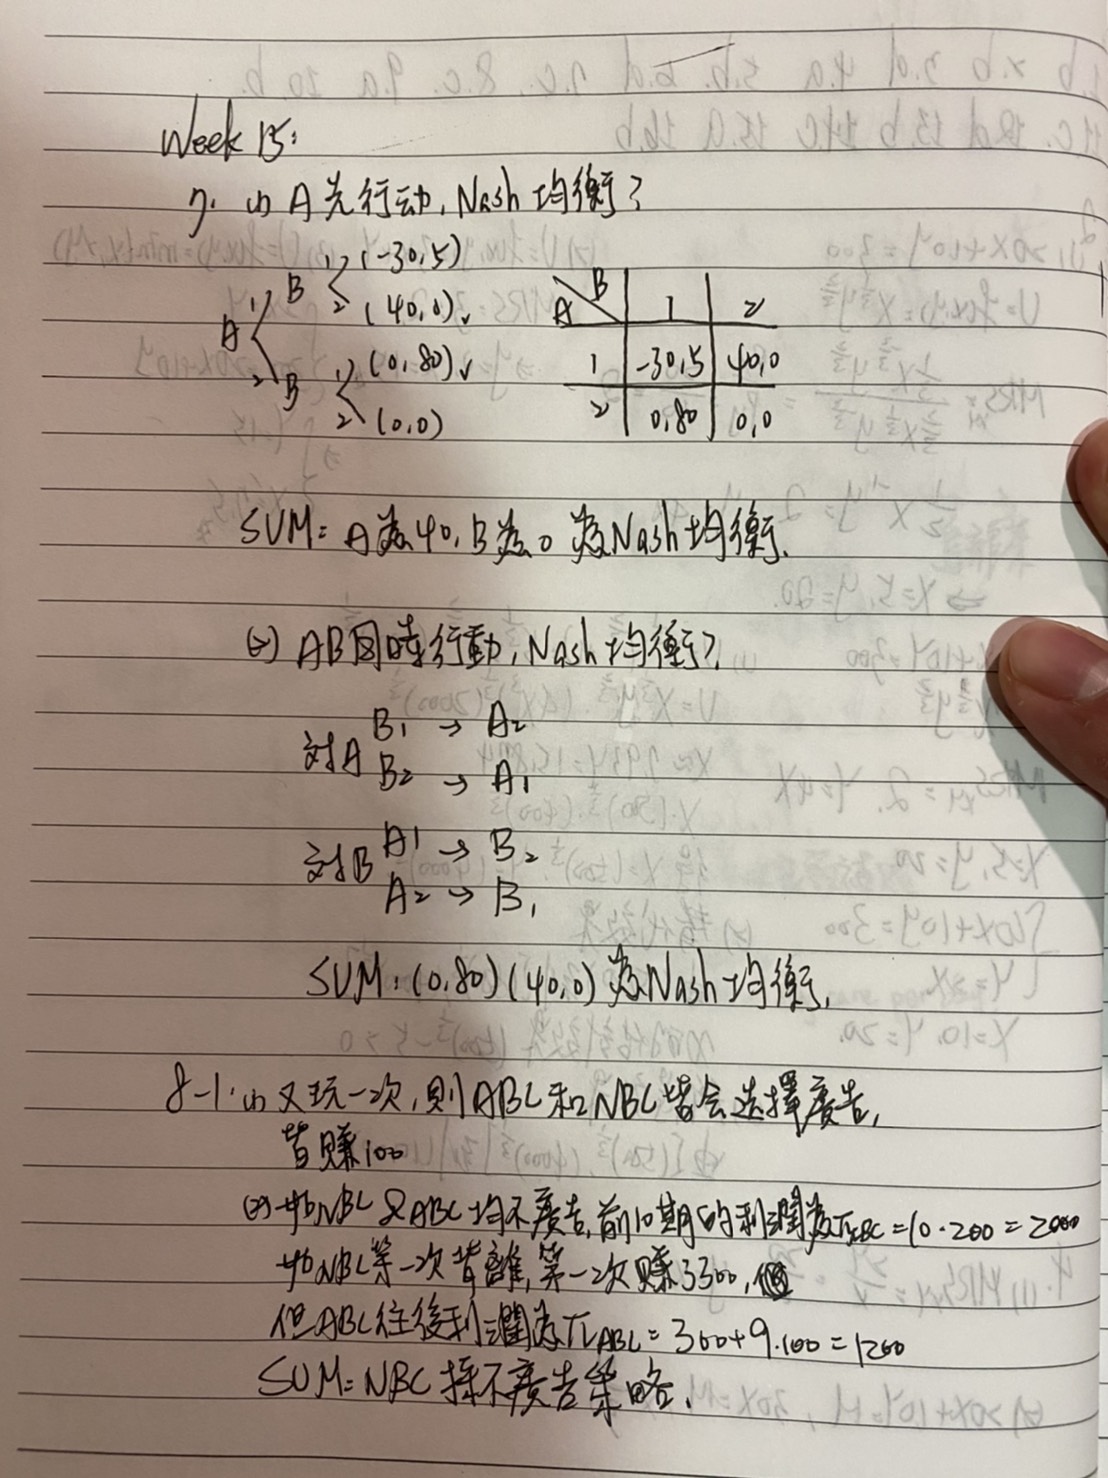 Week 15:
7. (1) A先行动, Nash均衡?
1 (-30,5)
1 B
2 (40,0)✓
A
1 (0,80)✓
2 B
2 (0,0)
B
A 1 2
1 -30,5 40,0
2 0,80 0,0
SUM: A為40, B為0 為Nash均衡.
(2) AB同時行動, Nash均衡?
対A B1 → A2
B2 → A1
対B A1 → B2
A2 → B1
SUM: (0,80)(40,0)為Nash均衡.
8-1. (1) 只玩一次, 則ABC和NBC皆会选擇廣告,
皆賺100
(2) 如NBC & ABC均不廣告, 前10期的利潤為πABC=10·200=2000
如NBC第一次背離, 第一次賺3300,
但ABC往後利潤為πABC=300+9·100=1200
SUM: NBC採不廣告策略.